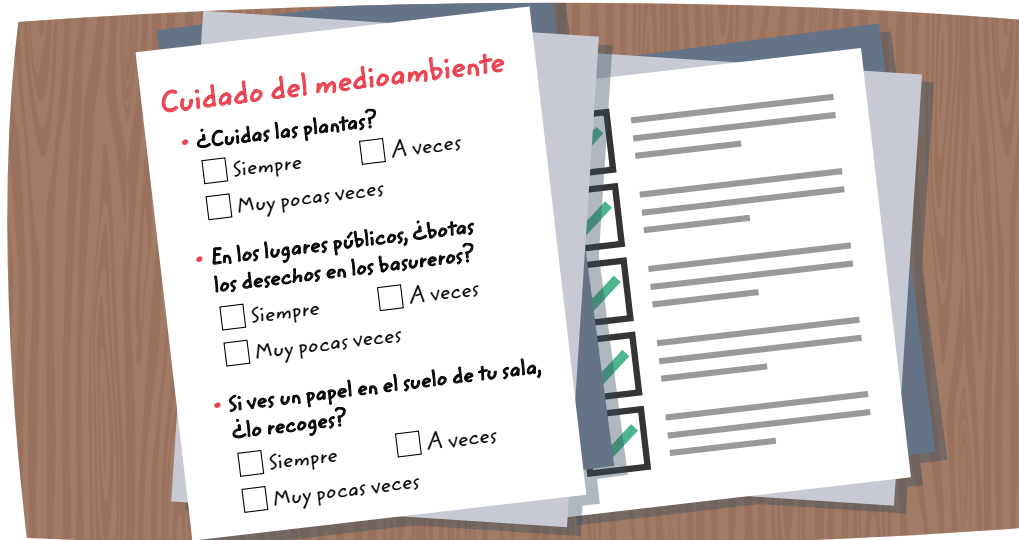 Cuidado del medioambiente
• ¿Cuidas las plantas?
Siempre A veces
Muy pocas veces
• En los lugares públicos, ¿botas
los desechos en los basureros?
Siempre A veces
Muy pocas veces
• Si ves un papel en el suelo de tu sala,
¿lo recoges?
Siempre A veces
Muy pocas veces